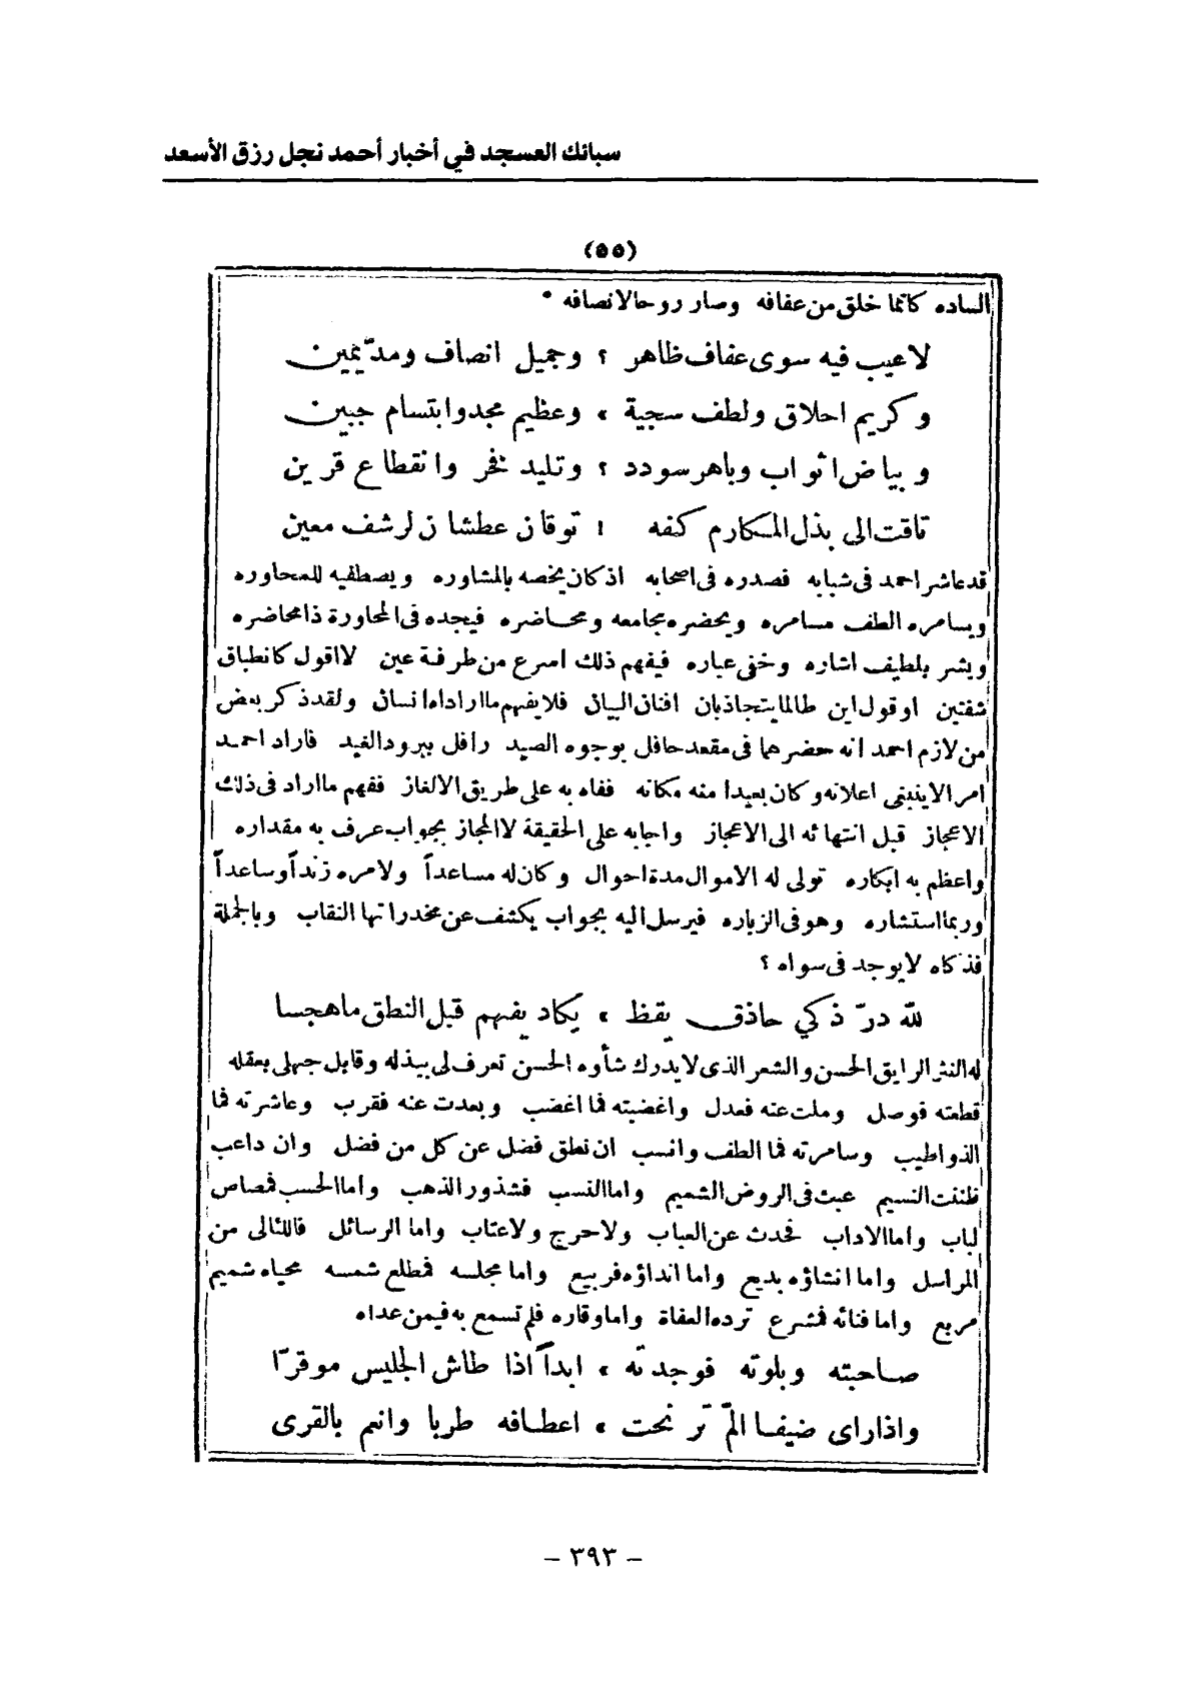 سبائك العسجد في أخبار أحمد نجل رزق الأسعد
(٥٥)
الساده كانما خلق من عفافه وصار روحا لانصافه *
لا عيب فيه سوى عفاف ظاهر ؟ وجميل انصاف ومدّ يمين
وكريم اخلاق ولطف سجية ، وعظيم مجد وابتسام جبين
وبياض اثواب وباهر سودد ؟ وتليد فخر وانقطاع قرين
تاقت الى بذل المكارم كفه ؛ توقان عطشان لرشف معين
قد عاشر احمد فى شبابه فصدره فى اصحابه اذ كان يخصه بالمشاوره ويصطفيه للمحاوره
ويسامره الطف مسامره ويحضره مجامعه ومحاضره فيجده فى المحاورة ذا محاضره
ويشر بلطيف اشاره وخفى عباره فيفهم ذلك اسرع من طرفة عين لا اقول كانطباق
شفتين او قول اين طالما يتجاذبان افنان البيان فلا يفهم ما اراداه انسان ولقد ذكر بعض
من لازم احمد انه حضرهما فى مقعد حافل بوجوه الصيد رافل ببرود الغيد فاراد احمد
امرا لا ينبغى اعلانه وكان بعيدا منه مكانه ففاه به على طريق الالغاز ففهم ما اراد فى ذلك
الاعجاز قبل انتهائه الى الاعجاز واجابه على الحقيقة لا المجاز بجواب عرف به مقداره
واعظم به ابكاره تولى له الاموال مدة احوال وكان له مساعداً ولامره زنداً وساعداً
وربما استشاره وهو فى الزباره فيرسل اليه بجواب يكشف عن مخدراتها النقاب وبالجملة
فذكاه لا يوجد فى سواه ؟
لله درّ ذكي حاذق يقظ ، يكاد يفهم قبل النطق ما هجسا
له النثر الرايق الحسن والشعر الذى لا يدرك شأوه الحسن تعرف لى ببذله وقابل جهلى بعقله
قطعته فوصل وملت عنه فعدل واغضبته فما اغضب وبعدت عنه فقرب وعاشرته فما
الذ واطيب وسامرته فما الطف وانسب ان نطق فضل عن كل من فضل وان داعب
ظننت النسيم عبث فى الروض الشميم واما النسب فشذور الذهب واما الحسب فمصاص
لباب واما الاداب فحدث عن العباب ولا حرج ولا عتاب واما الرسائل فاللئالى من
المراسل واما انشاؤه بديع واما انداؤه فربيع واما مجلسه فمطلع شمسه محياه شميم
مربع واما فنائه فمشرع ترده العفاة واما وقاره فلم تسمع به فيمن عداه
صاحبته وبلوته فوجدته ، ابداً اذا طاش الجليس موقرّا
واذا راى ضيفا المّ ترنحت ، اعطافه طربا وانعم بالقرى
- ٣٩٣ -